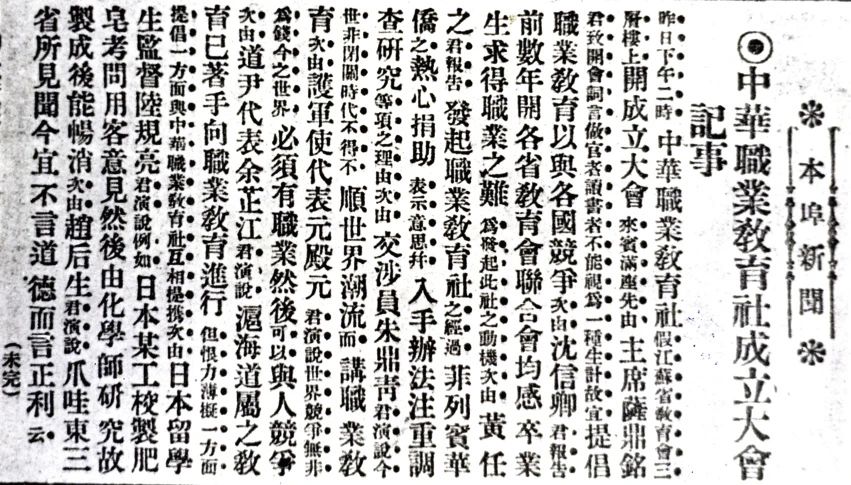 本埠新聞
◎中華職業敎育社成立大會
記事
昨日下午二時中華職業敎育社假江蘇省敎育會三
層樓上開成立大會來賓滿座先由主席薩鼎銘
君致開會詞言做官者讀書者不能視爲一種生計故宜提倡
職業敎育以與各國競爭次由沈信卿君報告
前數年開各省敎育會聯合會均感卒業
生求得職業之難爲發起此社之動機次由黃任
之君報告發起職業敎育社之經過菲列賓華
僑之熱心捐助表示意思幷入手辦法注重調
查研究等項之理由次由交涉員朱鼎靑君演說今
世非閉關時代不得不順世界潮流而講職業敎
育次由護軍使代表元殿元君演說世界競爭無非
爲錢今之世界必須有職業然後可以與人競爭
次由道尹代表余芷江君演說滬海道屬之敎
育已著手向職業敎育進行但恨力薄擬一方面
提倡一方面與中華職業敎育社互相提携次由日本留學
生監督陸規亮君演說例如日本某工校製肥
皂考問用客意見然後由化學師研究故
製成後能暢消次由趙后生君演說爪哇東三
省所見聞今宜不言道德而言正利云
（未完）